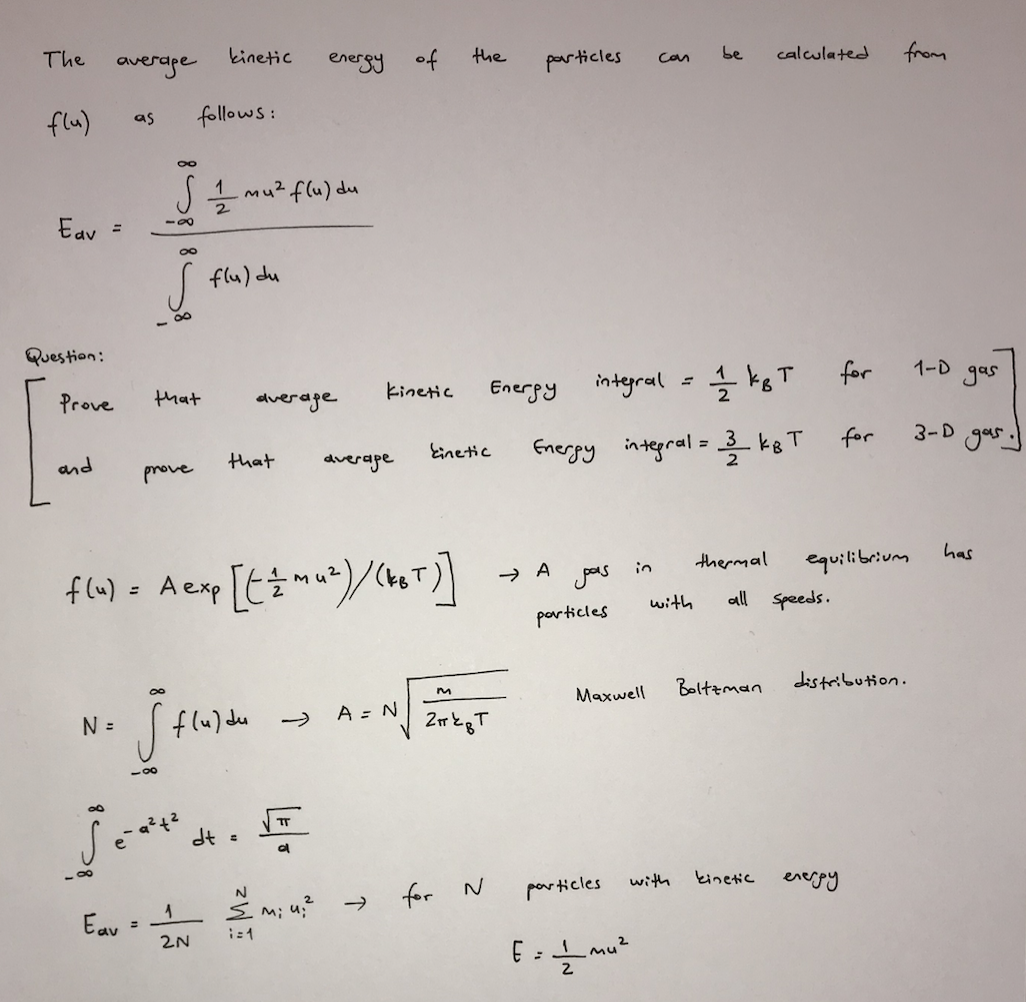 The average kinetic energy of the particles can be calculated from
f(u) as follows:
E_av = ∫_{-∞}^{∞} 1/2 mu² f(u) du / ∫_{-∞}^{∞} f(u) du
Question:
[Prove that average kinetic Energy integral = 1/2 k_B T for 1-D gas
and prove that average kinetic Energy integral = 3/2 k_B T for 3-D gas.]
f(u) = A exp [(-1/2 mu²)/(k_B T)] → A gas in thermal equilibrium has
particles with all speeds.
N = ∫_{-∞}^{∞} f(u) du → A = N √(m / 2πk_B T) Maxwell Boltzman distribution.
∫_{-∞}^{∞} e^{-a²t²} dt = √π / a
E_av = 1/2N Σ_{i=1}^{N} m_i u_i² → for N particles with kinetic energy
E = 1/2 mu²